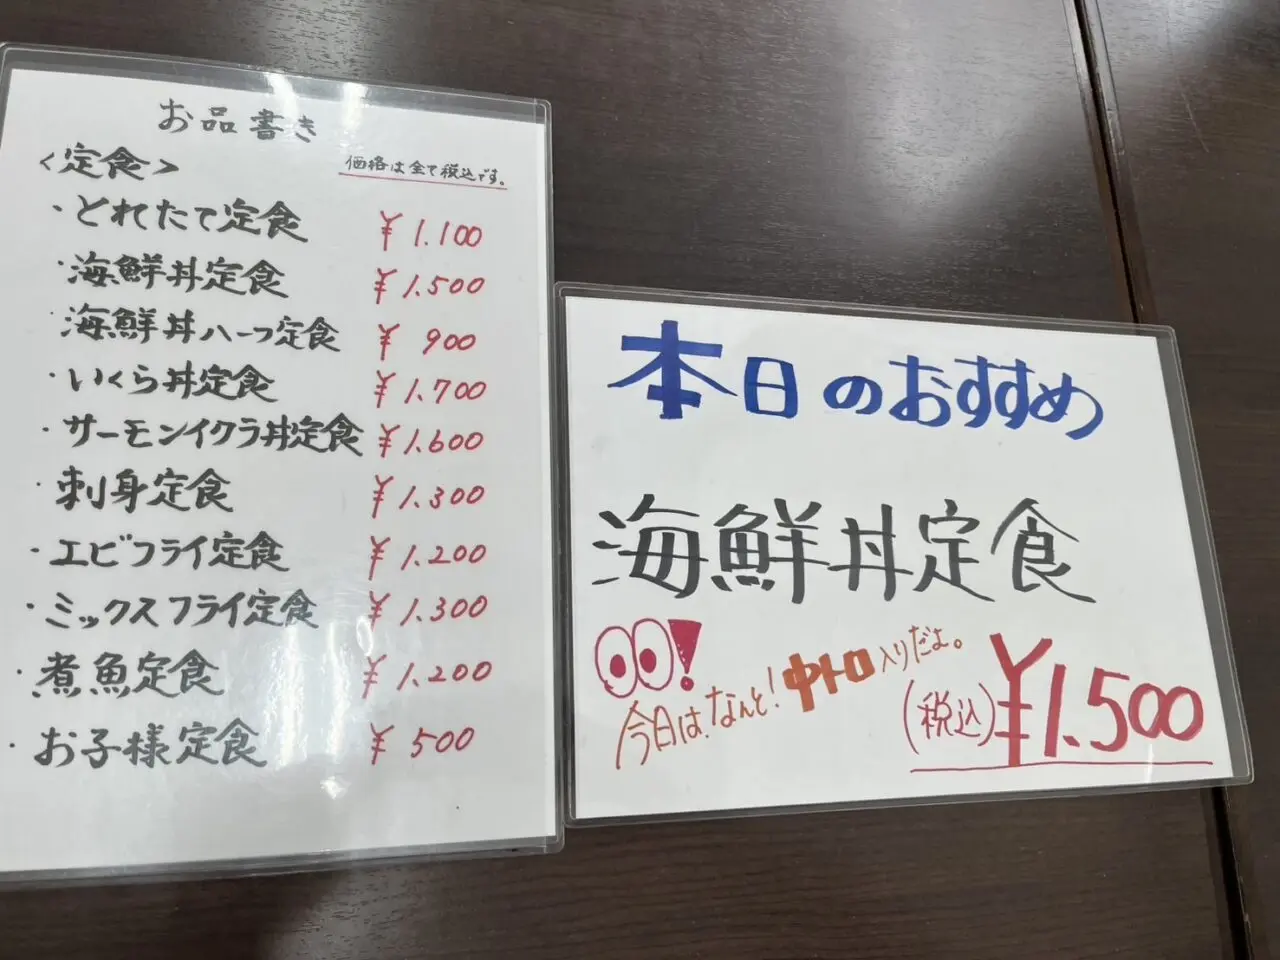 お品書き
<定食>
価格は全て税込です。
・とれたて定食 ¥1.100
・海鮮丼定食 ¥1.500
・海鮮丼ハーフ定食 ¥900
・いくら丼定食 ¥1.700
・サーモンイクラ丼定食 ¥1.600
・刺身定食 ¥1.300
・エビフライ定食 ¥1.200
・ミックスフライ定食 ¥1.300
・煮魚定食 ¥1.200
・お子様定食 ¥500
本日のおすすめ
海鮮丼定食
今日は、なんと!中トロ入りだよ。
(税込)¥1.500